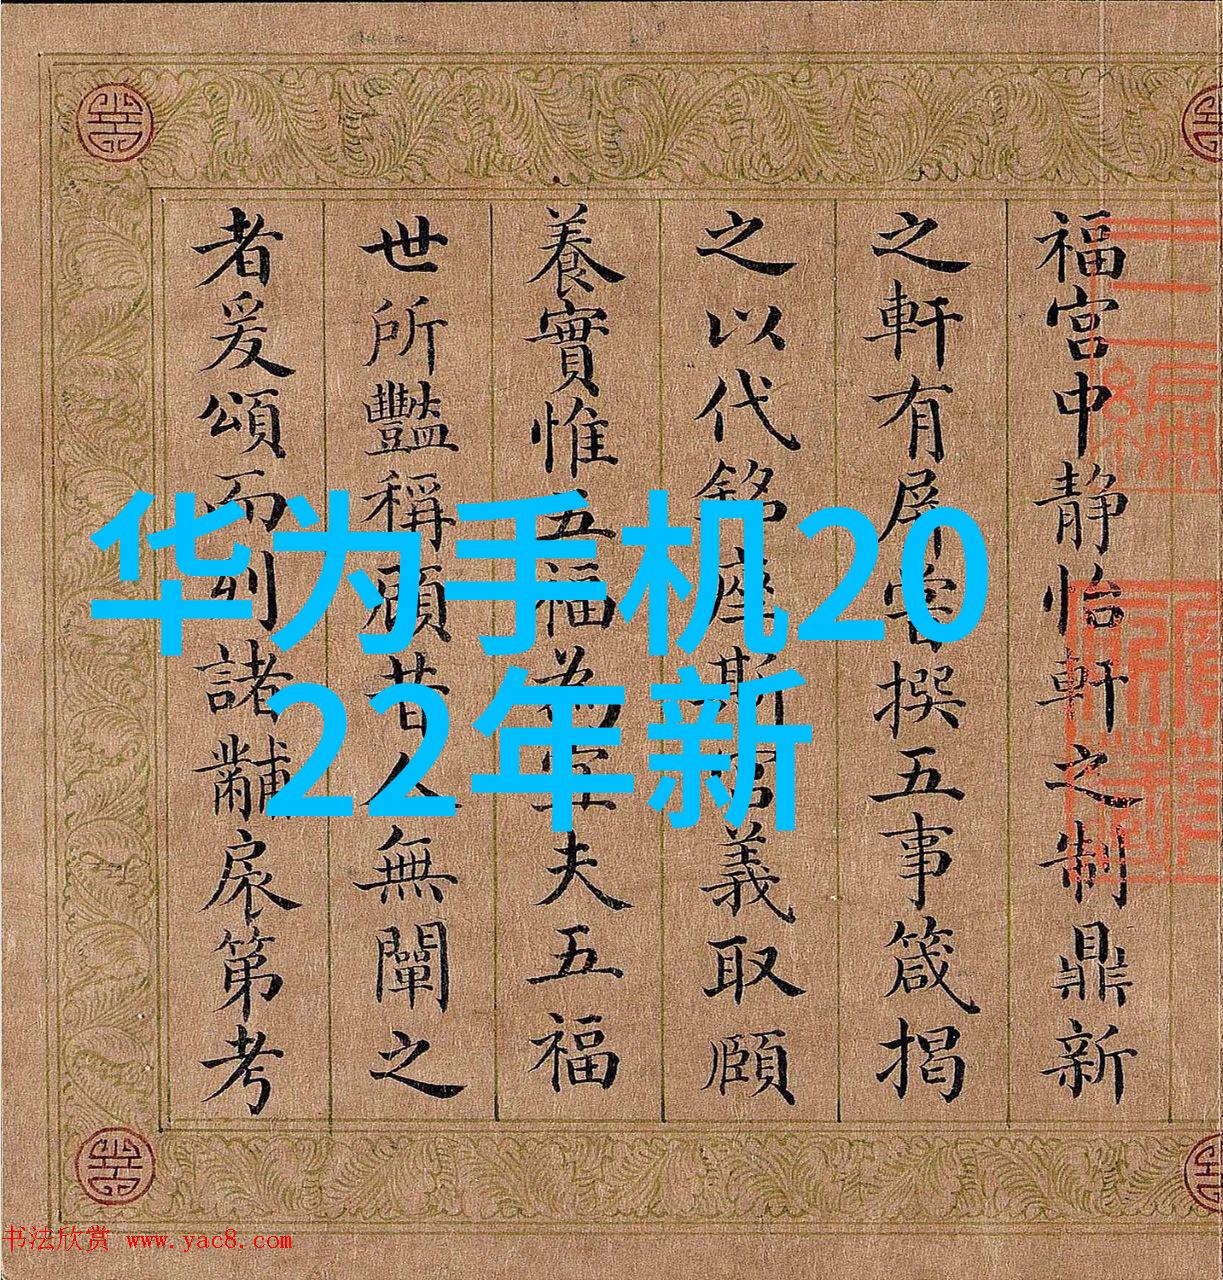 福宫中静怡軒之制鼎新
之軒有屏嘗撰五事箴揭
之以代銘座斯宫義取頤
養實惟五福為宜夫五福
世所豔稱顧昔人無闡之
者爰頌而列諸黼扆第考
华为手机20
22年新
书法欣赏 www.yac8.com